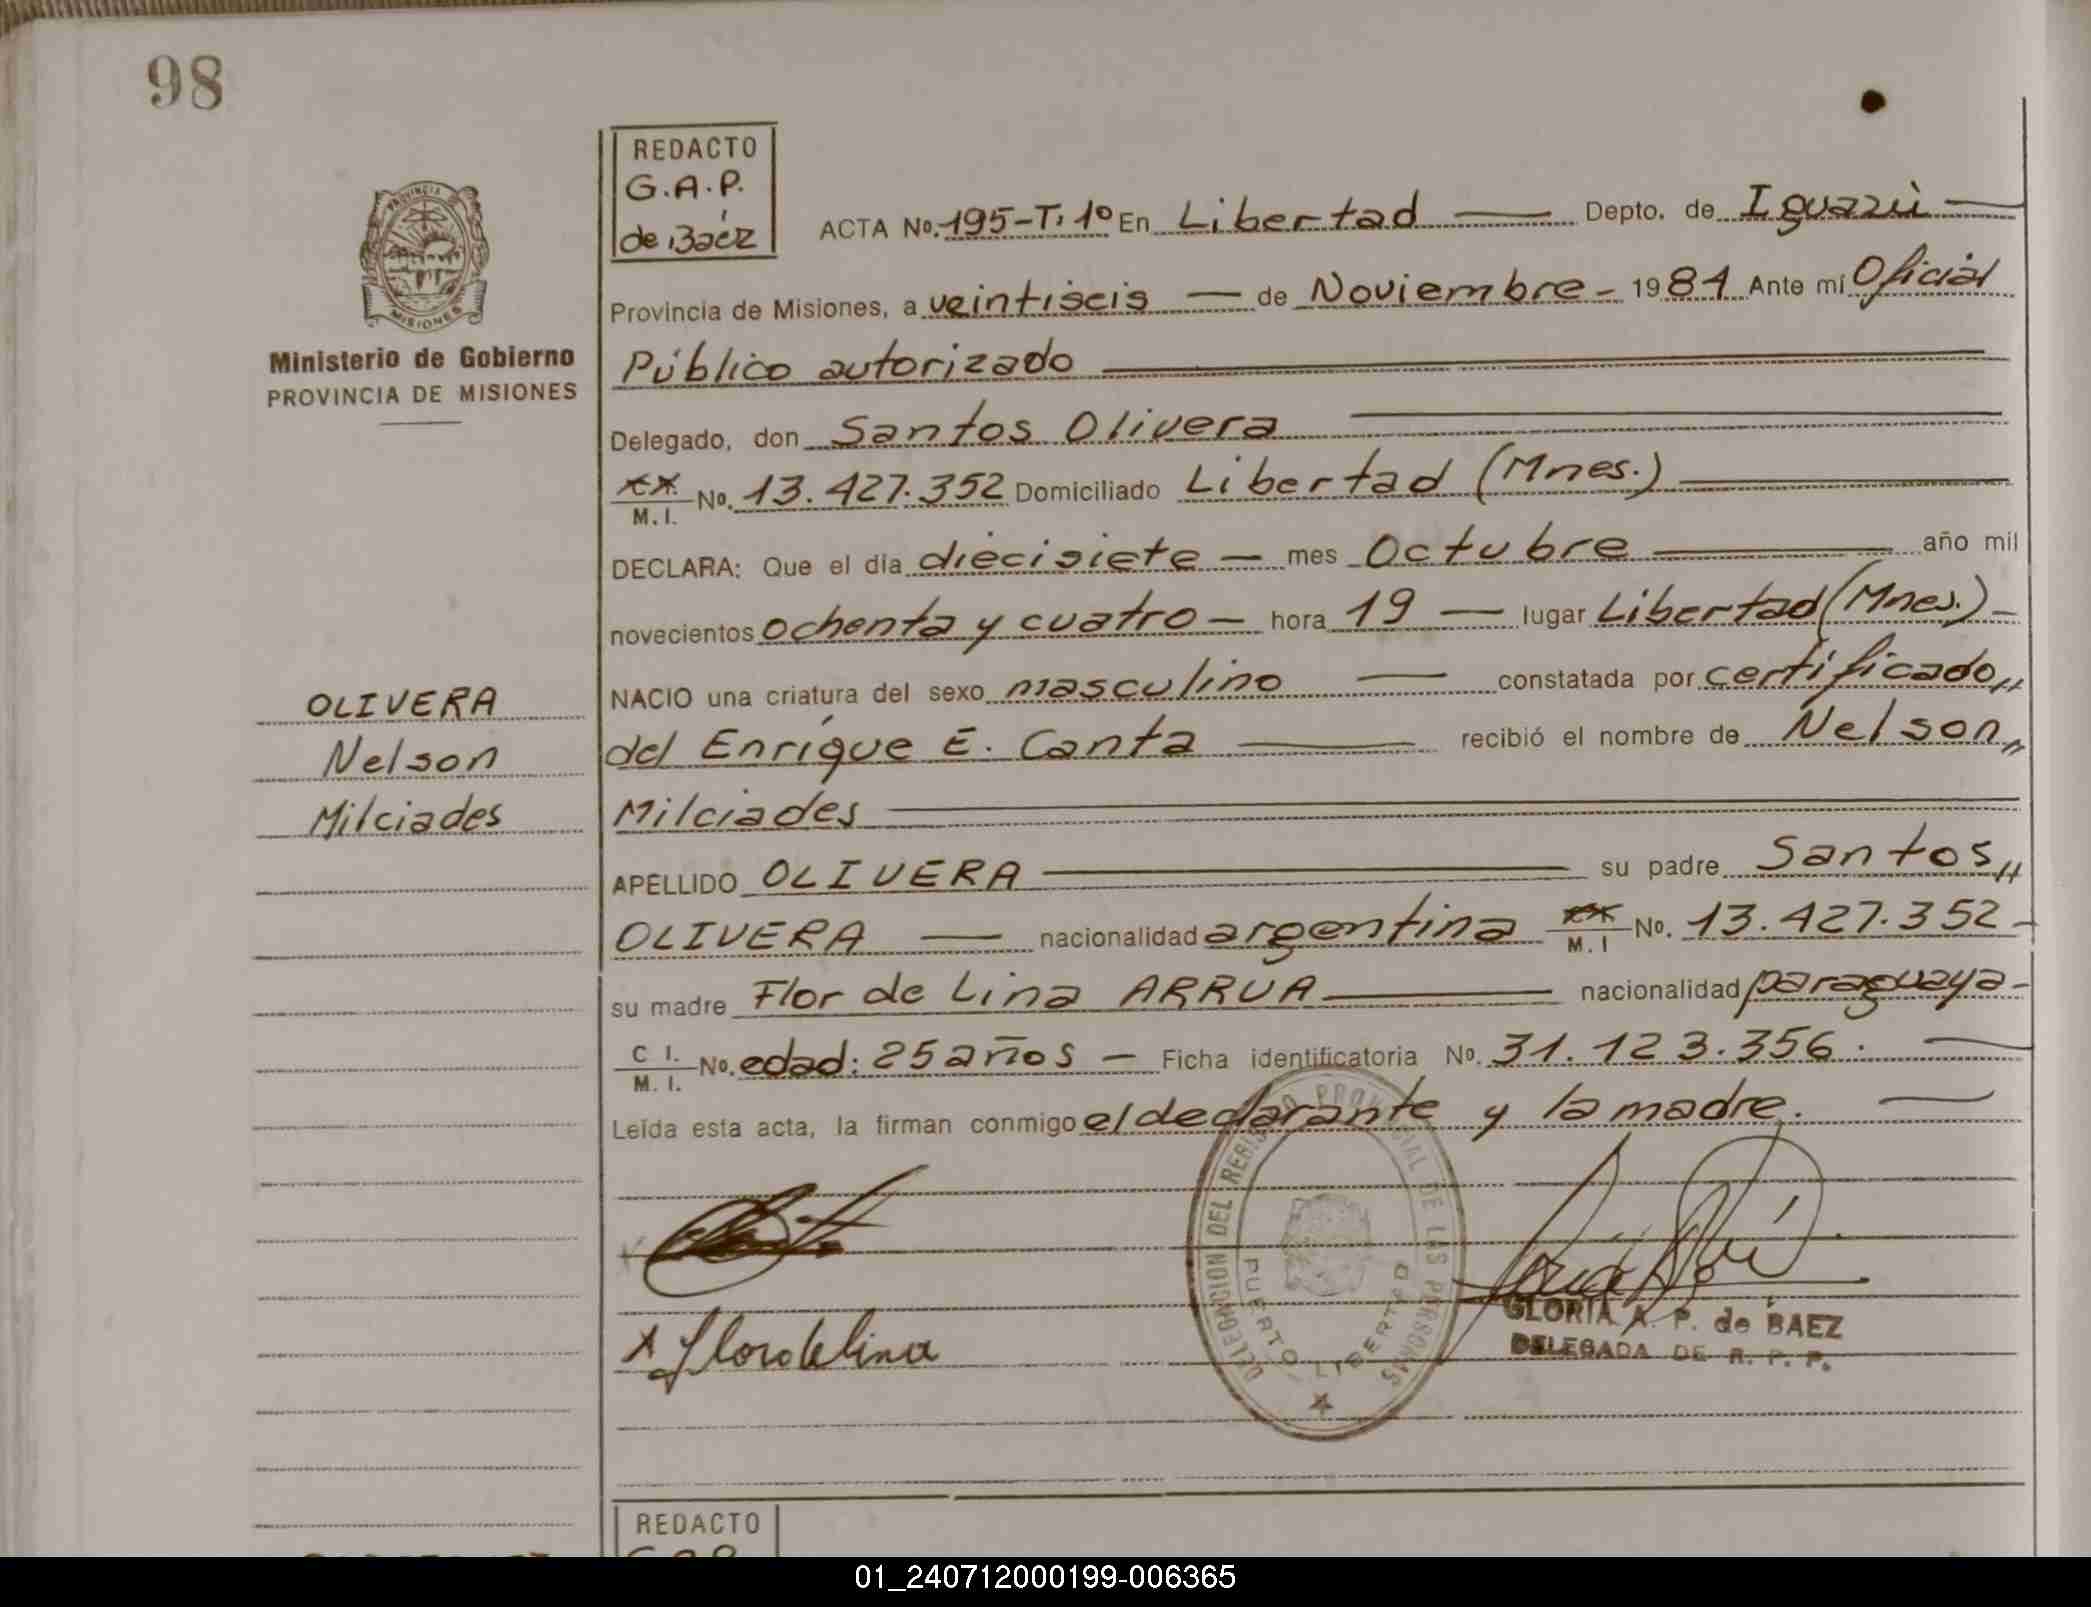 98
REDACTO
G.A.P.
de Baéz
ACTA No. 195-T. 1º En Libertad Depto. de Iguazù
Provincia de Misiones, a veintiseis de Noviembre 1984 Ante mí Oficial
Público autorizado
Delegado, don Santos Olivera
M. I. No. 13.427.352 Domiciliado Libertad (Mnes.)
DECLARA: Que el día diecisiete mes Octubre año mil
novecientos ochenta y cuatro hora 19 lugar Libertad (Mnes.)
NACIO una criatura del sexo masculino constatada por certificado,,
del Enrique E. Canta recibió el nombre de Nelson,,
Milciades
APELLIDO OLIVERA su padre Santos,,
OLIVERA nacionalidad argentina M. I No. 13.427.352
su madre Flor de Lina ARRUA nacionalidad paraguaya
C I. M. I. No. edad: 25 años Ficha identificatoria No. 31.123.356.
Leída esta acta, la firman conmigo el declarante y la madre.
PROVINCIA
MISIONES
Ministerio de Gobierno
PROVINCIA DE MISIONES
OLIVERA
Nelson
Milciades
DELEGACION DEL REGISTRO PROVINCIAL DE LAS PERSONAS
PUERTO LIBERTAD
GLORIA A. P. de BAEZ
DELEGADA DE R. P. P.
x Flordelina
REDACTO
01_240712000199-006365